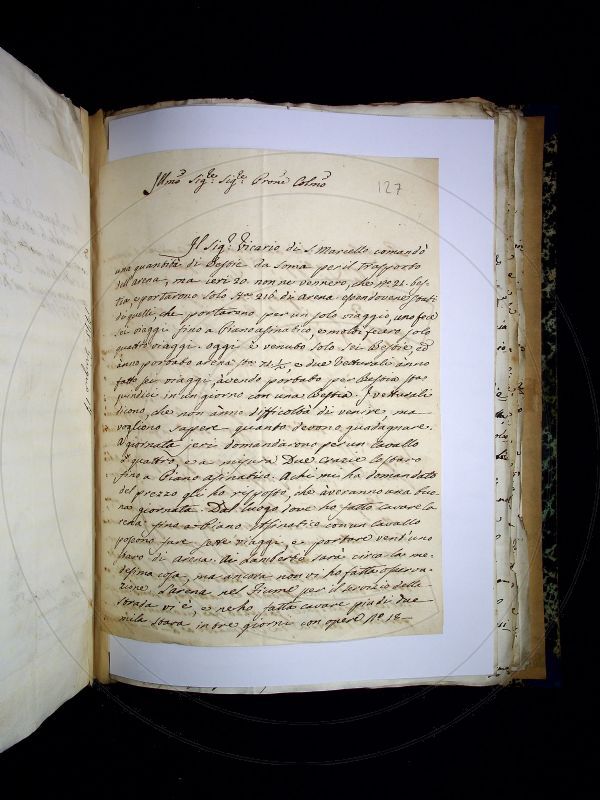 Illmo Sigre Sigre Prone Colmo
127
Il Sigr Vicario di S. Marcello comandò
una quantità di Bestie da soma per il trasporto
dell'arena, ma ieri 20. non ne vennero, che no 21. bes-
tia, e portarono solo 216 di Arena
di quelle, che portarono per un solo viaggio, uno fece
sei viaggi fino a Pianoasinatico, e molti fecero solo
quattro viaggi. oggi è venuto solo sei Bestie, ed
ànno portato arena e due Vetturali ànno
fatto sei viaggi, avendo portato per Bestia
quindici in un giorno con una Bestia. I vetturali
dicono, che non ànno difficoltà di venire, ma
vogliono sapere quanto devono guadagnare
a giornata jeri domandarono per un Cavallo
quattro e a misura Due crazie lo staro
fino a Piano asinatico. A chi mi ha domandato
del prezzo gli ho risposto, che àveranno una buo-
na giornata. Dal luogo dove ho fatto cavare la
rena fino a Piano Assinatico con un Cavallo
possono fare sette viaggi, e portare ventuno
staro di arena. da Lamberto sarà circa la me-
desima cosa, ma ancora non vi ho fatta osserva-
zione. L'arena nel Fiume per il servizio della
strada vi è, e ne ho fatta cavare più di due
mila stara in tre giorni con opere No 18 —